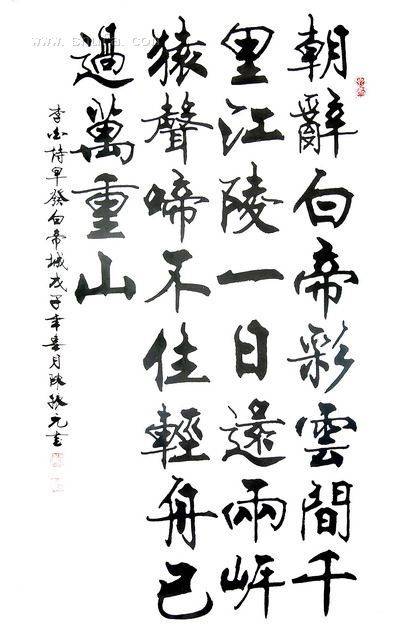 朝辭白帝彩雲間千
里江陵一日還兩岸
猿聲啼不住輕舟已
過萬重山
李白詩早發白帝城戊子年春月陳振元書